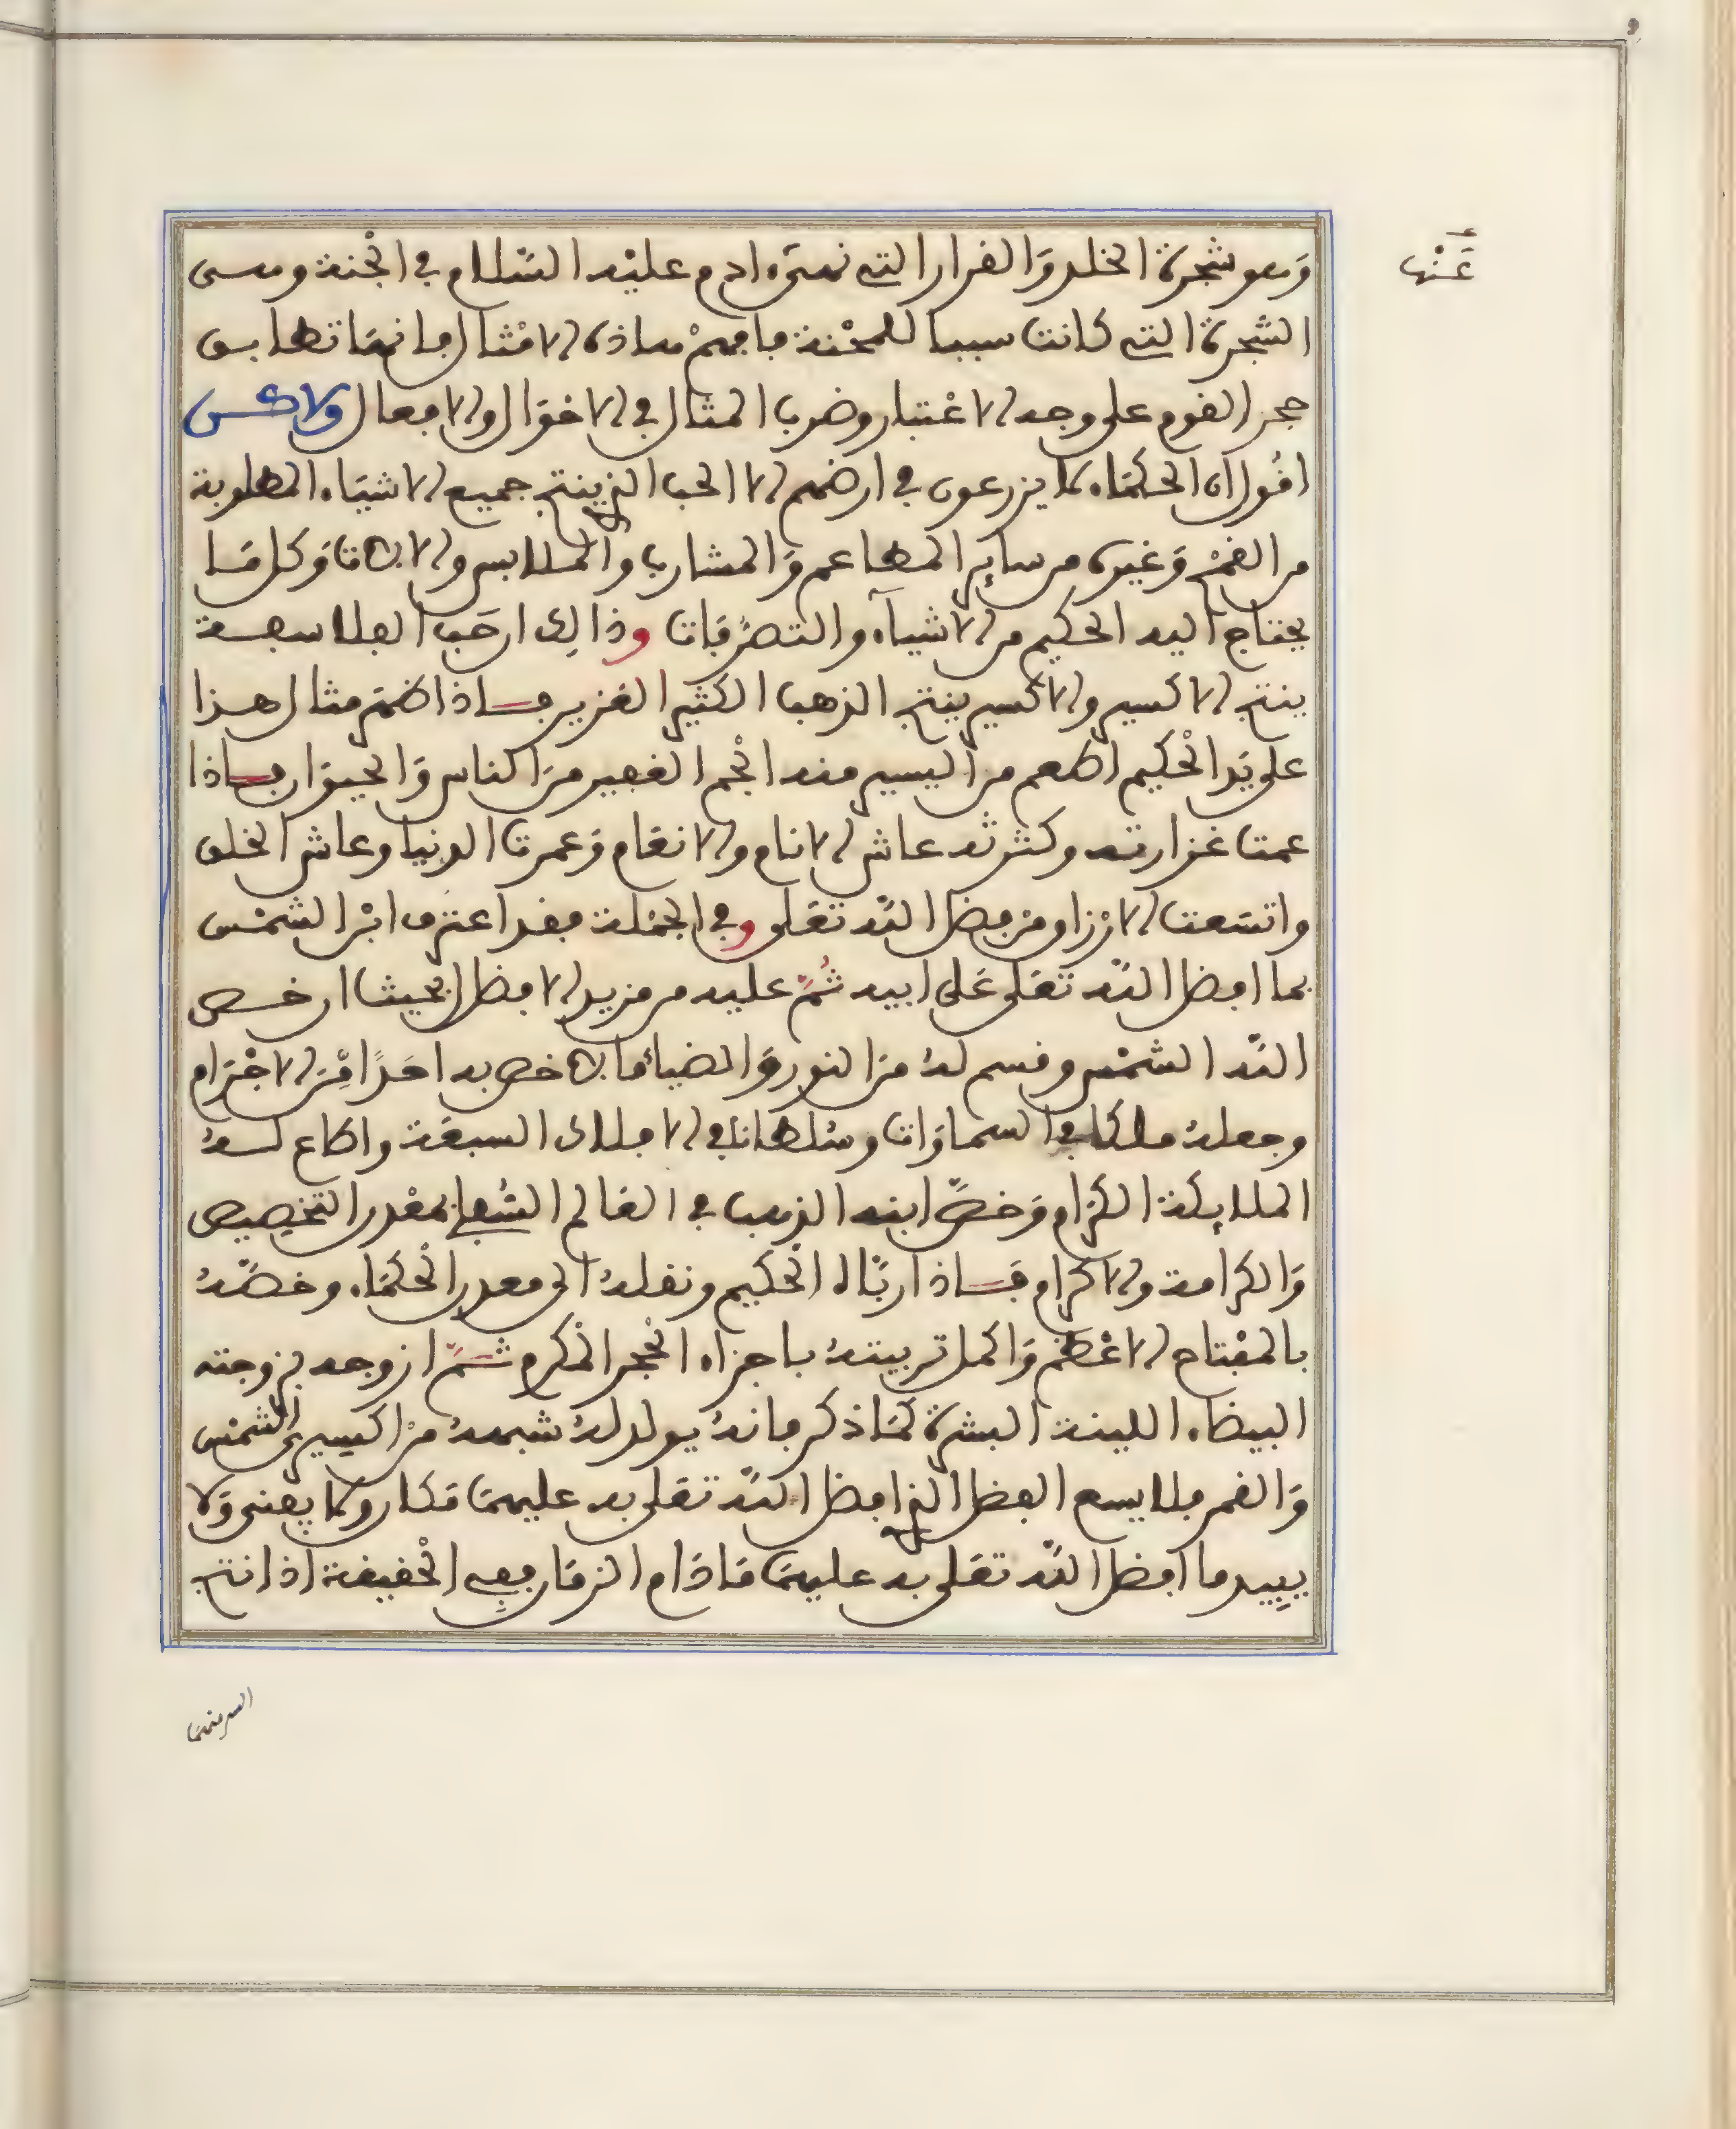 وهو شجرة الخلد والقرار التي نهى ادم عليه السلام في الجنة وهى
عنها
الشجرة التي كانت سببا للمحنة فافهم هاذه الامثال فانها تطابق
حجر القوم على وجه الاعتبار وضرب المثال في الاحوال والافعال ولاكن
اقول ان الحكماء لا يزرعون في ارضهم الا الحب الذي ينتج جميع الاشياء المطلوبة
من القمح وغيره من ساير المطاعم والمشارب والملابس والالات وكل ما
يحتاج اليه الحكيم من الاشياء والتصرفات وذالك ان حب الفلاسفة
ينتج الاكسير والاكسير ينتج الذهب الكثير الغزير فاذا ظهر مثال هذا
على يد الحكيم اطعم من اليسير منه الجم الغفير من الناس والحيوان فاذا
عمت غزارته وكثرته عاش الانام والانعام وعمرت الدنيا وعاش الخلق
واتسعت الارزاق من فضل الله تعلى وفي الجملة فقد اعترف ابن الشمس
بما افضل الله تعلى على ابيه ثم عليه من مزيد الافضل بحيث ان خص
الله الشمس وقسم له من النور والضياء ما لا خص به احدا من الاجرام
وجعله ملكا في السماوات وسلطانا في الافلاك السبعة واطاع له
الملايكة الكرام وخص ابنه الذهب في العالم السفلي بمقدر التخصيص
والكرامة والاكرام فاذا رباه الحكيم ونقله الى معدن الحكماء وخصه
بالمفتاح الاعظم واكمل تربيته باجزاء الحجر المكرم ثم ازوجه بزوجته
البيضاء اللينة البشرة كما ذكر فانه يولد له شبهه من اكسيري الشمس
والقمر فلا يسع الفضل الذي افضل الله تعلى به عليهما مكان ولا يفنى ولا
يبيد ما افضل الله تعلى به عليهما ما دام الزمان ففي الحقيقة اذا نتج